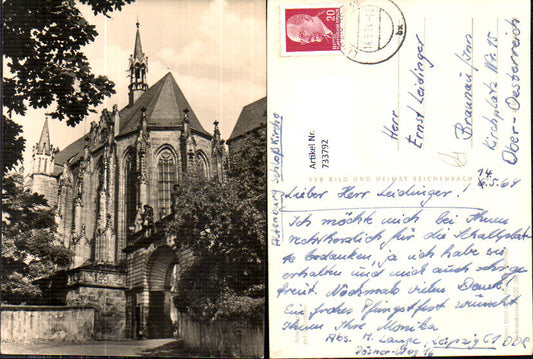 20
14.5.64
Herr
Ernst Leidinger
Braunau/Inn
Kirchplatz Nr. 15
Ober-Oesterreich
Artikel Nr.
733792
VEB BILD UND HEIMAT REICHENBACH
Altenburg Schloßkirche
Lieber Herr Leidinger!
Ich möchte mich bei Ihnen
recht herzlich für die Schallplatte
bedanken, ja ich habe sie
erhalten und mich auch sehr ge-
freut. Nochmals vielen Dank!
Ein frohes Pfingstfest wünscht
Ihnen Ihre Monika
Abs. M. Lampe, Leipzig C1 DDR